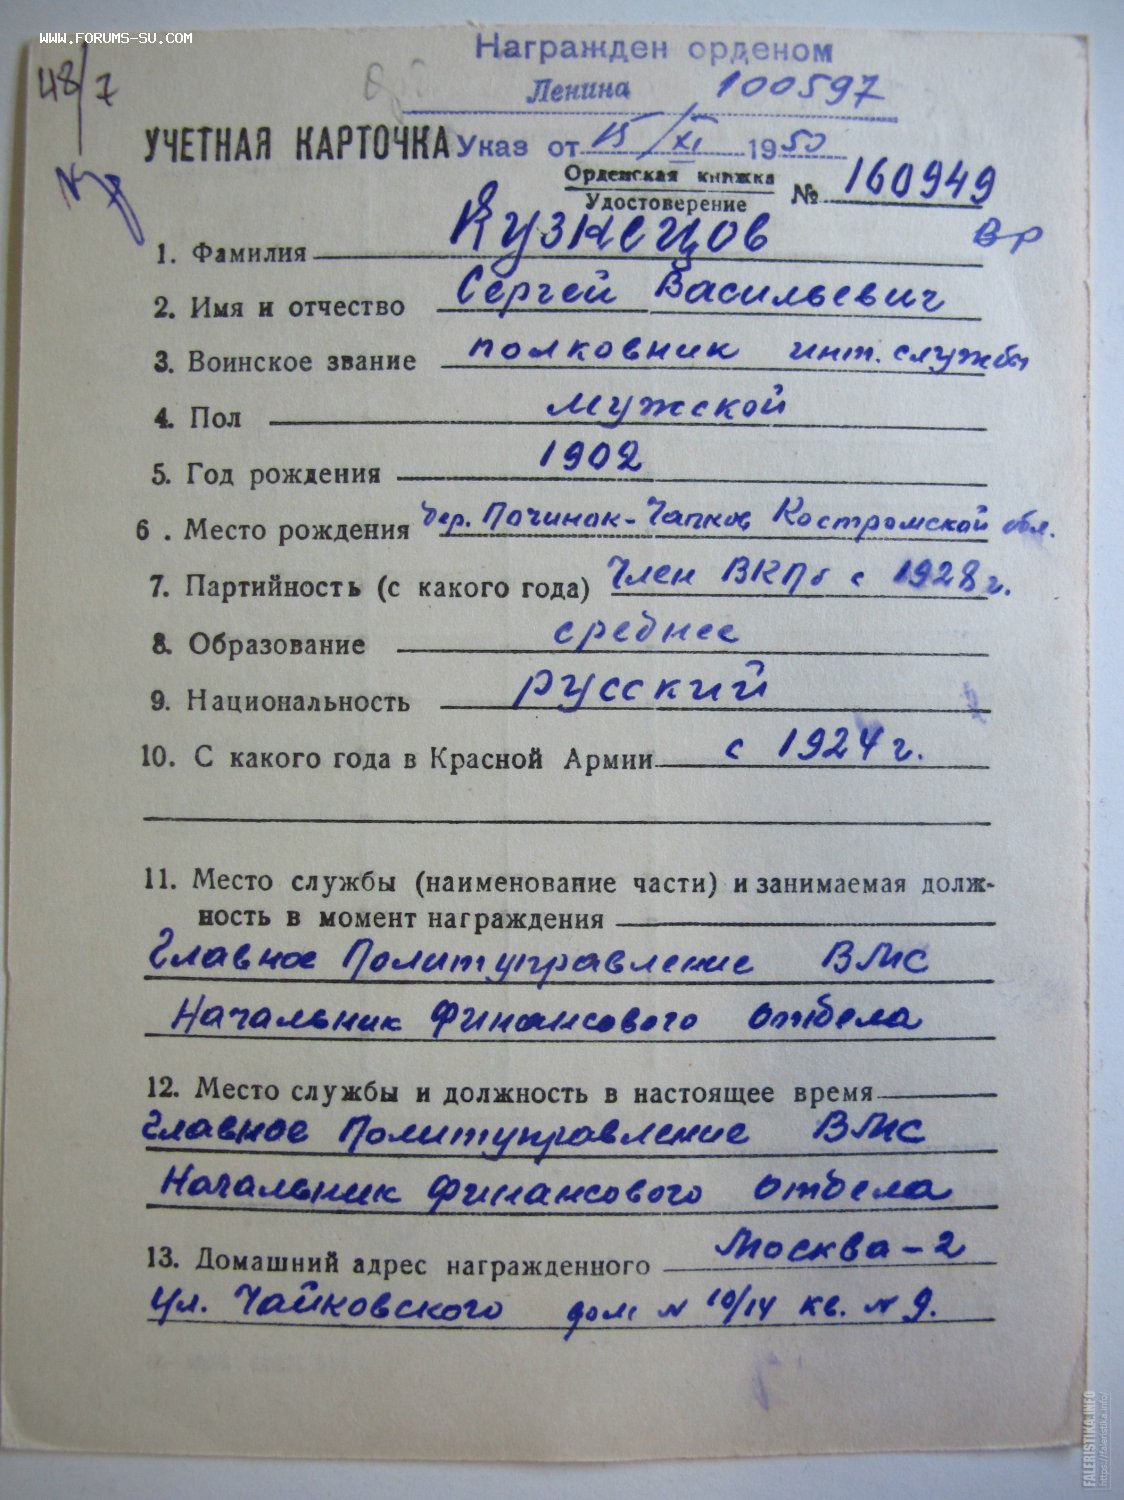 WWW.FORUMS-SU.COM
48/7
Награжден орденом
Ленина 100597
УЧЕТНАЯ КАРТОЧКА Указ от 15/XI 1950
Орденская книжка
Удостоверение № 160949
Вр
1. Фамилия Кузнецов
2. Имя и отчество Сергей Васильевич
3. Воинское звание полковник инт. службы
4. Пол мужской
5. Год рождения 1902
6. Место рождения дер. Починок-Чапков Костромской обл.
7. Партийность (с какого года) Член ВКПб с 1928 г.
8. Образование среднее
9. Национальность русский
10. С какого года в Красной Армии с 1924 г.
11. Место службы (наименование части) и занимаемая долж-
ность в момент награждения
Главное Политуправление ВМС
Начальник финансового отдела
12. Место службы и должность в настоящее время
Главное Политуправление ВМС
Начальник финансового отдела
13. Домашний адрес награжденного Москва-2
ул. Чайковского дом N 10/14 кв. N 9.
FALERISTIKA.INFO
https://faleristika.info/